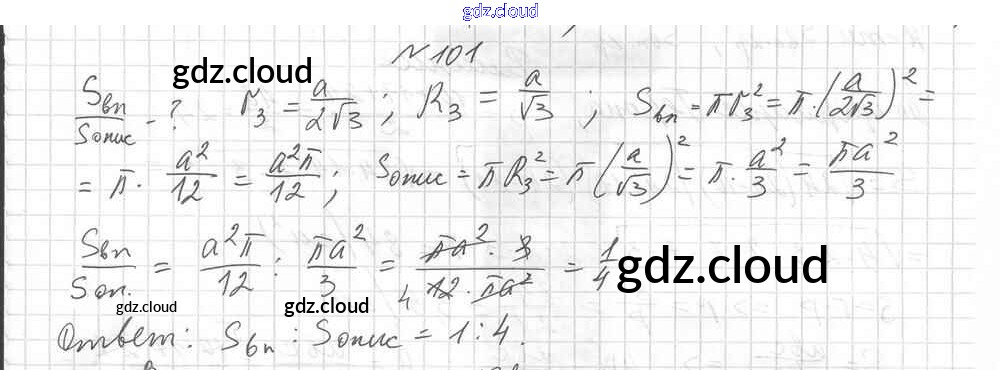 gdz.cloud
№ 101
gdz.cloud
Sвп/Sопис - ? r₃ = a/2√3 ; R₃ = a/√3 ; Sвп = πr₃² = π·(a/2√3)² =
= π · a²/12 = a²π/12 ; Sопис = πR₃² = π(a/√3)² = π · a²/3 = πa²/3
Sвп/Sоп. = a²π/12 : πa²/3 = πa² · 3/12 · πa² = 1/4
4
gdz.cloud
gdz.cloud
gdz.cloud
Ответ: Sвп : Sопис = 1 : 4.